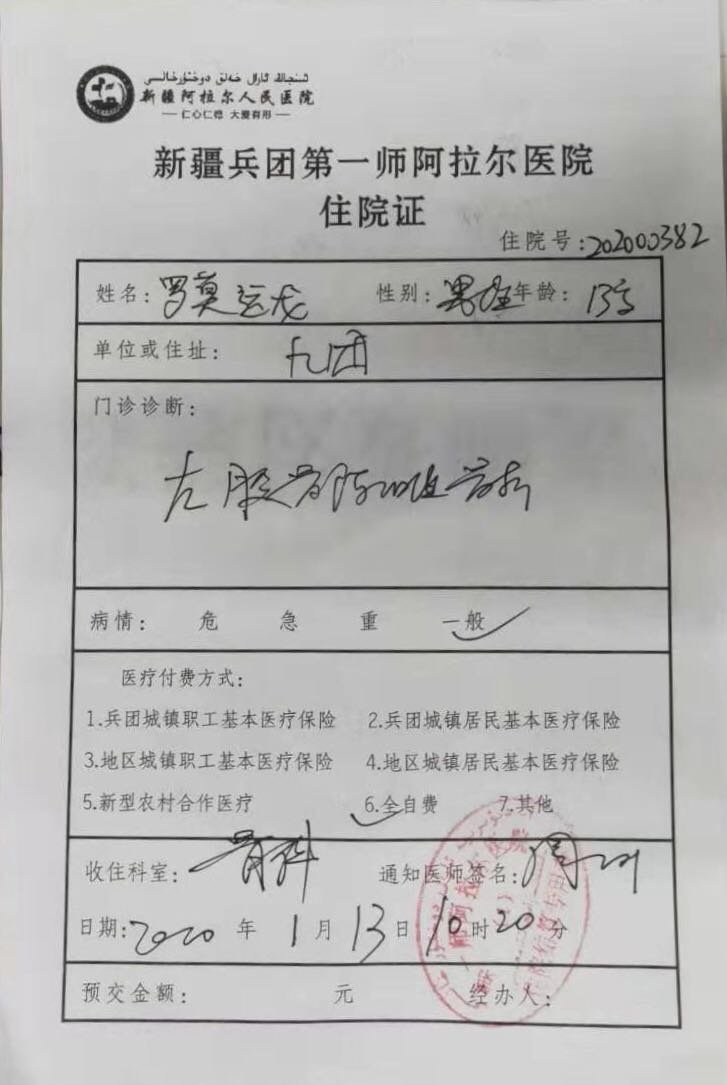 新疆阿拉尔人民医院
仁心仁德 大爱有形
新疆兵团第一师阿拉尔医院
住院证
住院号:202000382
姓名:罗莫运龙 性别:男 年龄:13岁
单位或住址: 九团
门诊诊断:
左股骨陈旧性骨折
病情: 危 急 重 一般
医疗付费方式:
1.兵团城镇职工基本医疗保险 2.兵团城镇居民基本医疗保险
3.地区城镇职工基本医疗保险 4.地区城镇居民基本医疗保险
5.新型农村合作医疗 6.全自费 7.其他
收住科室: 骨科 通知医师签名:
日期:2020 年 1 月 13 日 10 时 20 分
预交金额: 元 经办人: